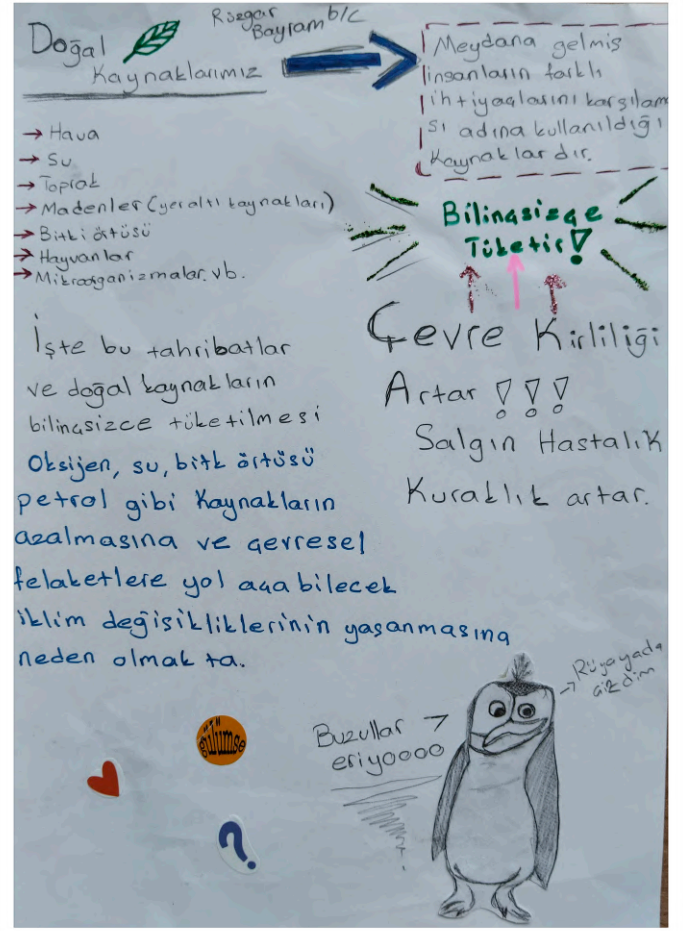 Doğal
Kaynaklarımız
Rüzgar
Bayram 6/C
Meydana gelmiş
insanların farklı
ihtiyaçlarını karşılama
sı adına kullanıldığı
Kaynaklardır.
→ Hava
→ Su
→ Toprak
→ Madenler (yeraltı kaynakları)
→ Bitki örtüsü
→ Hayvanlar
→ Mikroorganizmalar.vb.
Bilinçsizce
Tüketir!
Çevre Kirliliği
Artar !!!
Salgın Hastalık
Kuraklık artar.
İşte bu tahribatlar
ve doğal kaynakların
bilinçsizce tüketilmesi
Oksijen, su, bitk örtüsü
petrol gibi Kaynakların
azalmasına ve çevresel
felaketlere yol açabilecek
iklim değişikliklerinin yaşanmasına
neden olmak ta.
gülümse
?
Buzullar
eriyoooo
çizdim